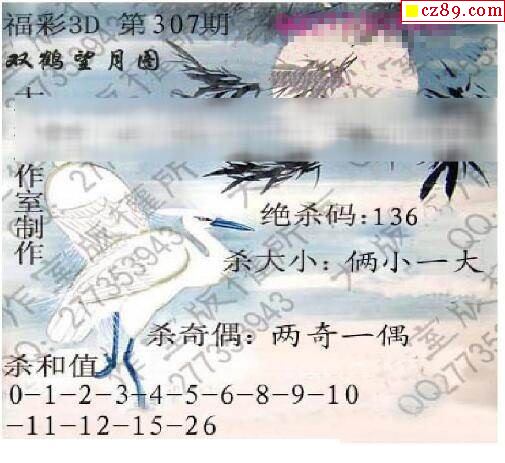 福彩3D 第307期
cz89.com
双鹤望月图
作室制作
绝杀码:136
杀大小: 俩小一大
杀奇偶: 两奇一偶
杀和值
0-1-2-3-4-5-6-8-9-10
-11-12-15-26
版权所
QQ277353943